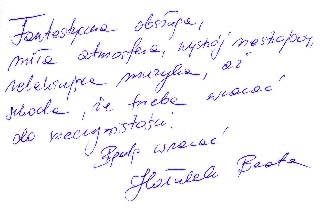 Fantastyczna obsługa,
miła atmosfera, wystrój nastrojowy,
relaksująca muzyka, aż
szkoda, że trzeba wracać
do rzeczywistości!
Będę wracać
Beata